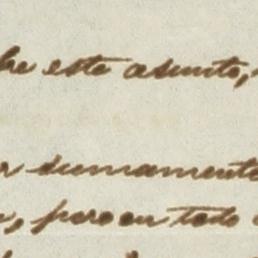 este asunto,
sumamente
pero en todo